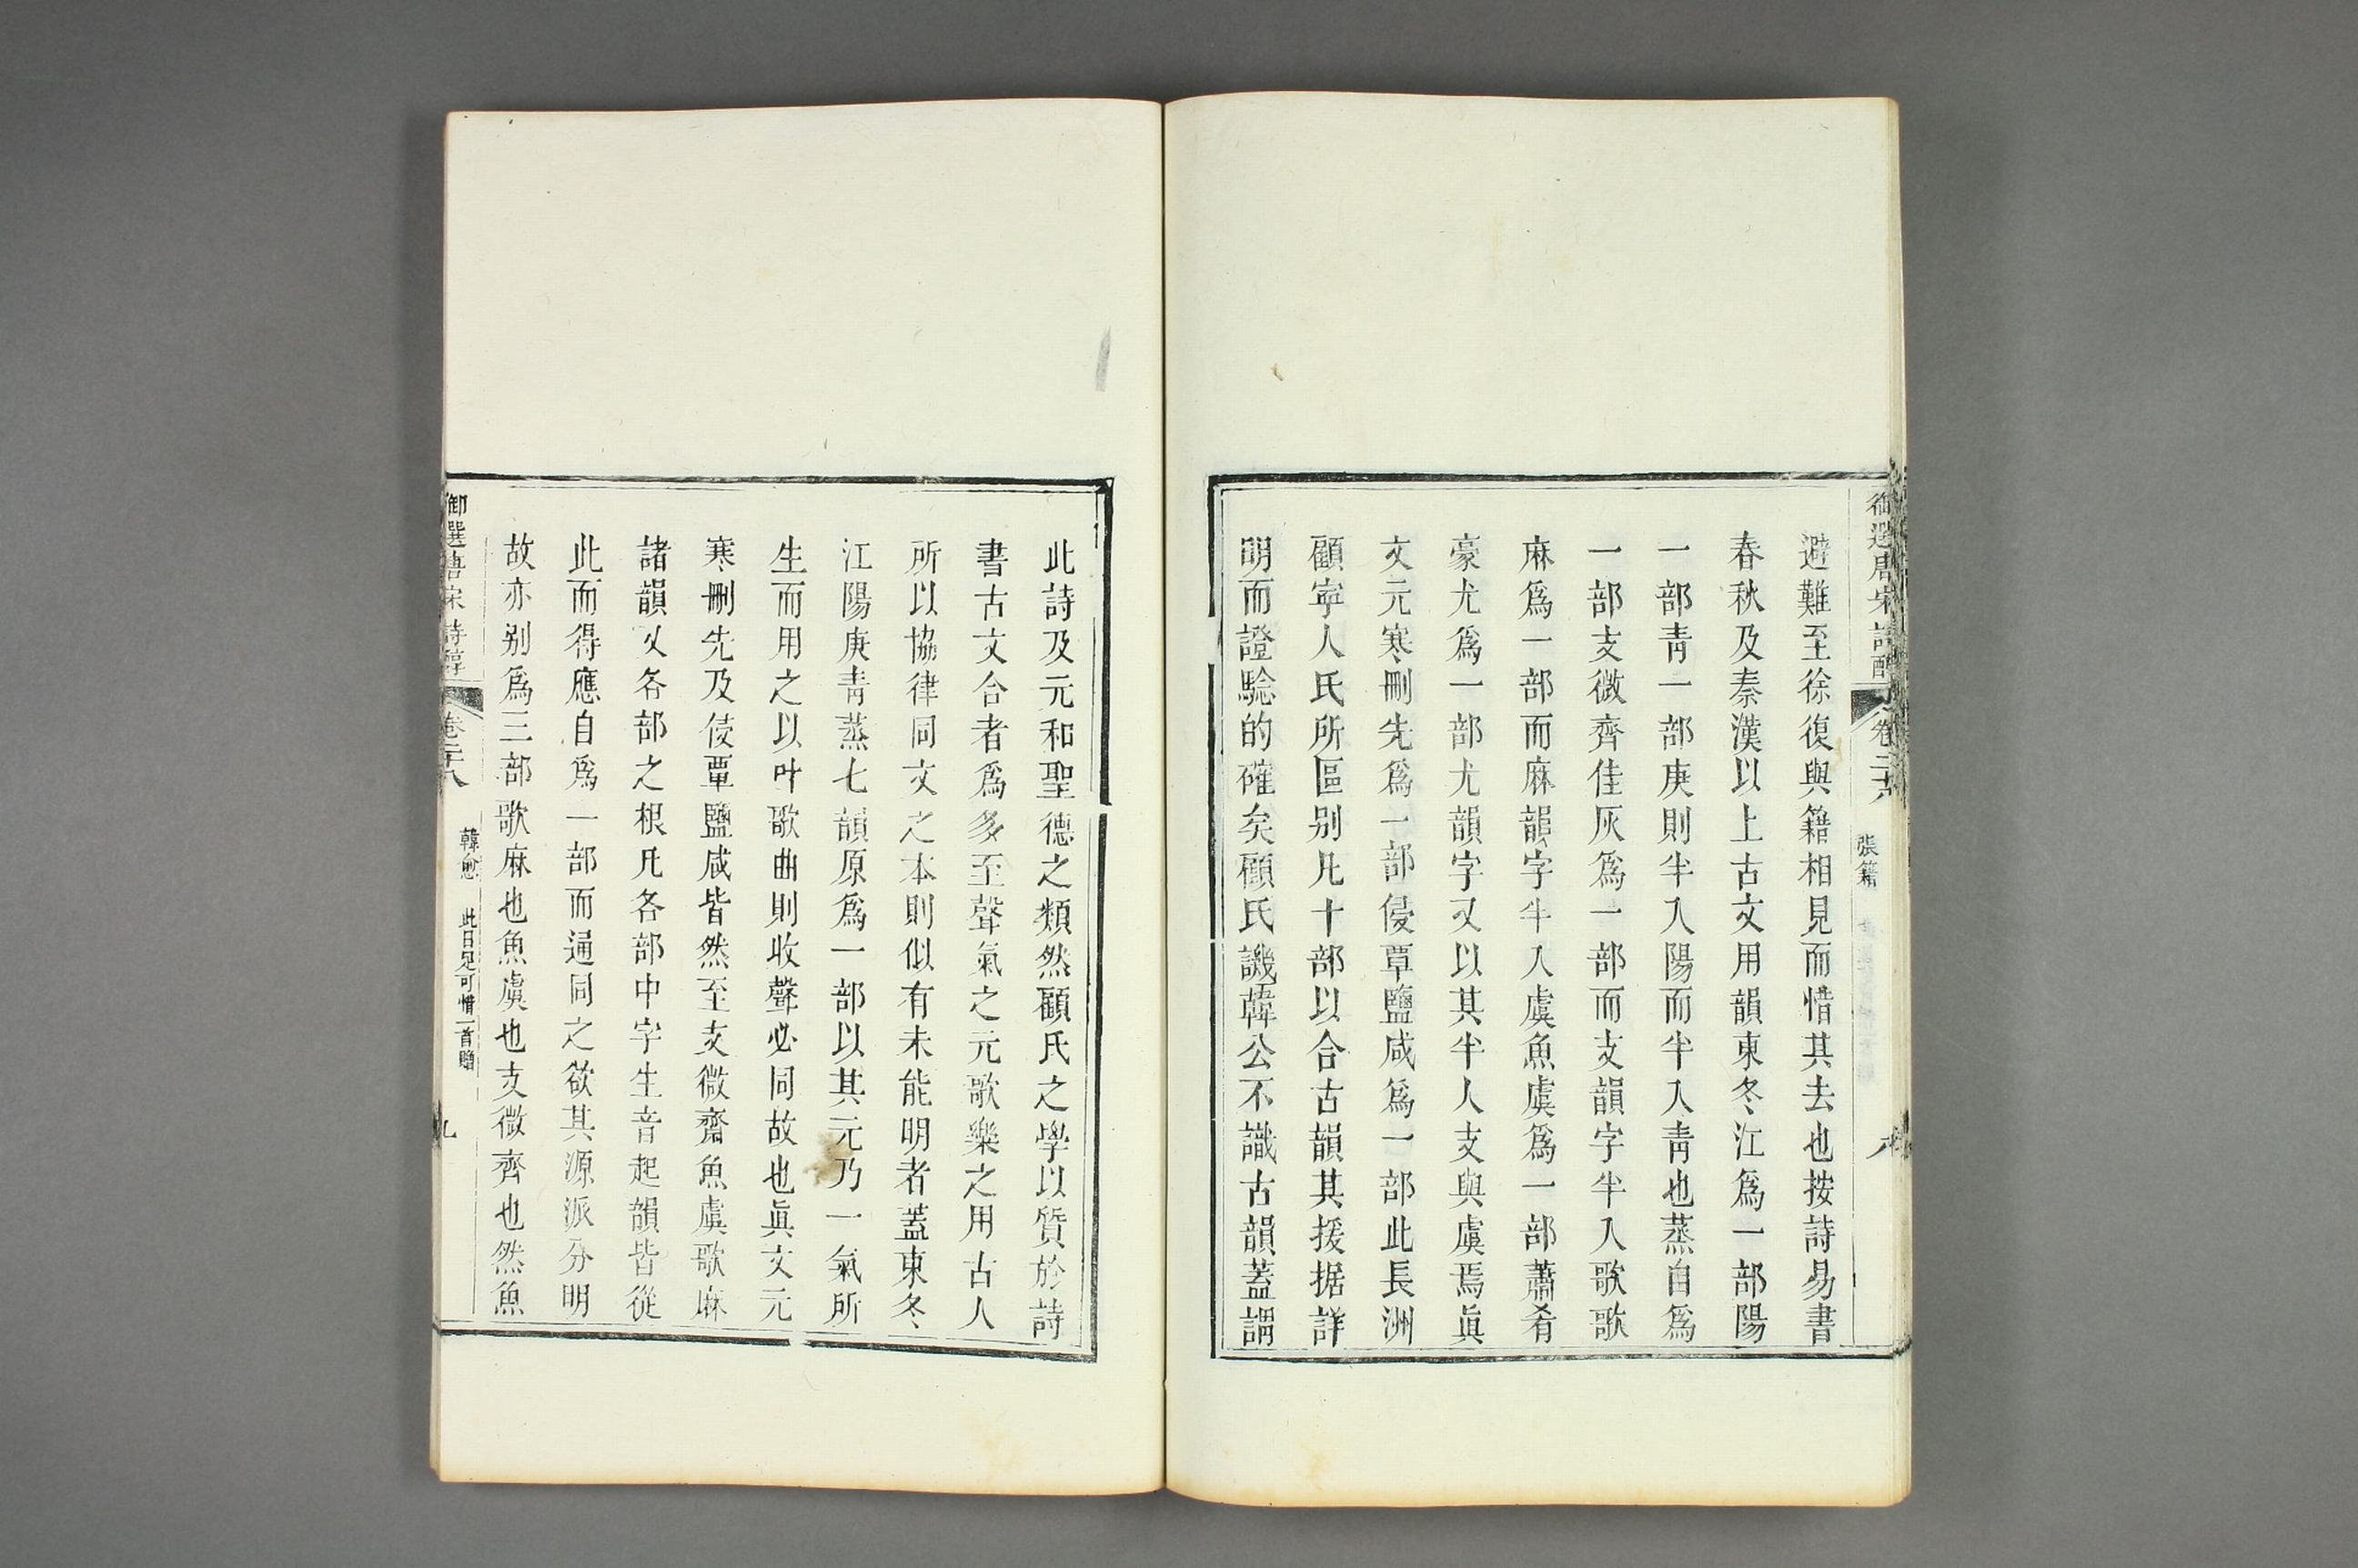 御選唐宋詩醇 卷二十八 張籍 八
避難至徐復與籍相見而惜其去也按詩易書
春秋及秦漢以上古文用韻東冬江爲一部陽
一部青一部庚則半入陽而半入青也蒸自爲
一部支微齊佳灰爲一部而支韻字半入歌歌
麻爲一部而麻韻字半入虞魚虞爲一部蕭肴
豪尤爲一部尤韻字又以其半人支與虞焉眞
文元寒刪先爲一部侵覃鹽咸爲一部此長洲
顧寧人氏所區别凡十部以合古韻其援据詳
明而證驗的確矣顧氏譏韓公不識古韻蓋謂
此詩及元和聖德之類然顧氏之學以質於詩
書古文合者爲多至聲氣之元歌樂之用古人
所以協律同文之本則似有未能明者蓋東冬
江陽庚青蒸七韻原爲一部以其元乃一氣所
生而用之以叶歌曲則收聲必同故也眞文元
寒刪先及侵覃鹽咸皆然至支微齊魚虞歌麻
諸韻又各部之根凡各部中字生音起韻皆從
此而得應自爲一部而通同之欲其源派分明
故亦别爲三部歌麻也魚虞也支微齊也然魚
御選唐宋詩醇 卷二十八 韓愈 此日足可惜一首贈 九